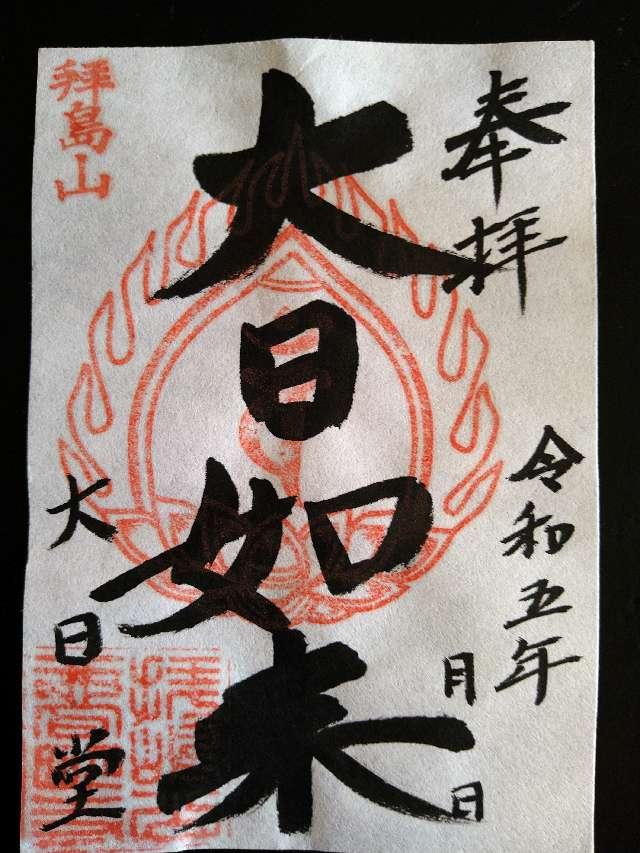 奉拝
令和五年
月日
大日如来
拝島山
大日堂